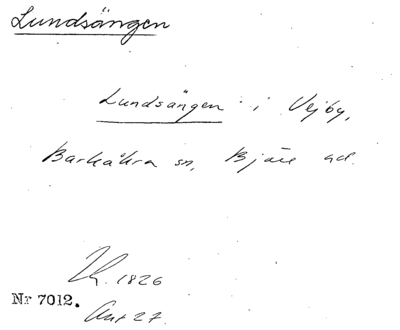 Lundsängen
Lundsängen i Vejby,
Barkåkra sn, Bjäre hd.
1826
Nr 7012.
27.